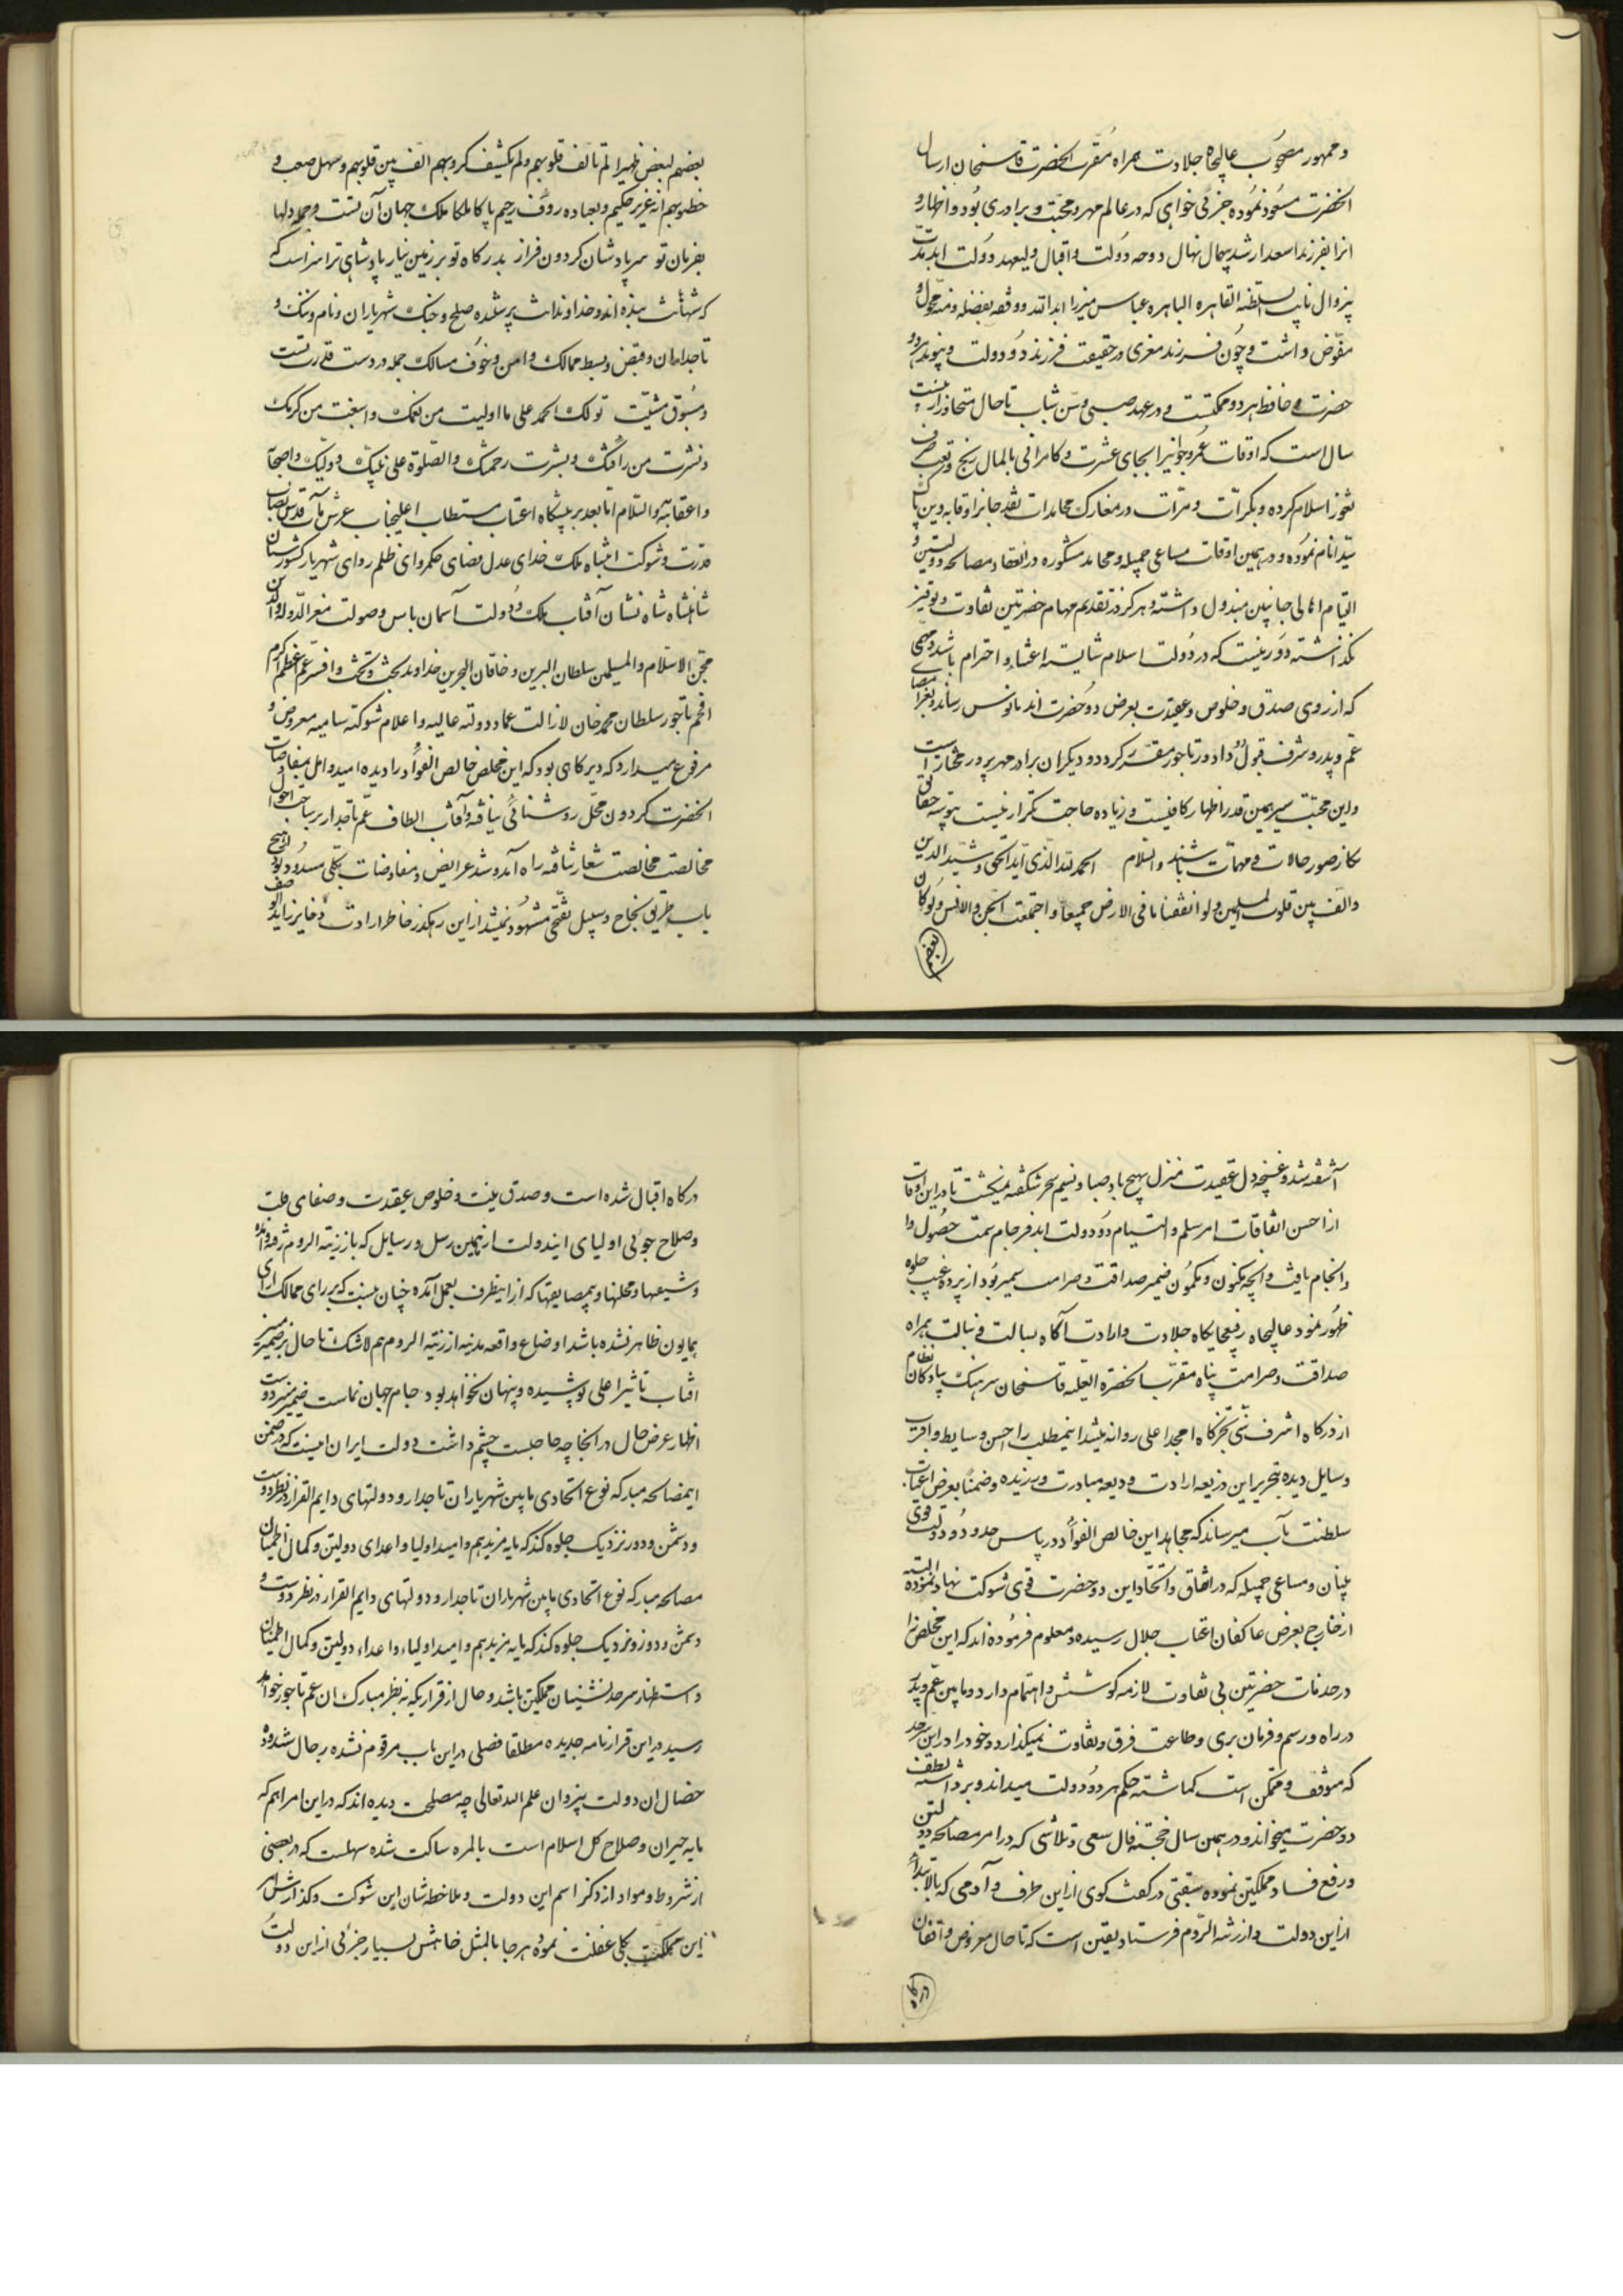 و ممهور مصحوب عالیجاه جلادت همراه مقرب الحضرت قاسمخان ارسال
الحضرت مسعود نموده جزئی خواهی که در عالم مهر و محبت و برادری بود و اظهار و
انرا بفرزند اسعد ارشد بیهمال نهال دوحه دولت و اقبال ولیعهد دولت ابد مدت
بیزوال نایب السلطنه القاهره الباهره عباس میرزا ایده الله و وفقه بفضله و منه محول و
مفوض داشت و چون فرزند مغزی در حقیقت فرزند دو دولت و پیوند هر دو
حضرت و حافظ هر دو مملکتست و در عهد صبی و سن شباب تا حال متجاوز از بیست
سال است که اوقات عمر و جوانیرا بجای عشرت و کامرانی بالمال رنج و تعب صرف
ثغور اسلام کرده و بکرات و مرات در معارک مجاهدات نقد جانرا وقایه دین پاک
سید انام نموده و در همین اوقات مساعی جمیله و محامد مشکوره در انعقاد مصالحه دولتین و
التیام اهالی جانبین مبذول داشته و هرگز در تقدیم مهام حضرتین تفاوت و توفیر
نگذاشته دور نیست که در دولت اسلام شایسته اعتناء و احترام باشد و مهمی
که از روی صدق و خلوص و عقیدت بعرض دو حضرت ابد مانوس رساند و بغرا امضای
عم و پدر و شرف قبول دو داور تاجور مقرر گردد و دیگران برادر مهرپرور مختار است
و این محبت سیر بهمین قدر اظهار کافیست و زیاده حاجت تکرار نیست بتوسه حقایق
نگار صور حالات و مهمات باشند والسلام الحمد لله الذی اید الحق و شید الدین
و الف بین قلوب المسلمین و لو انفقنا ما فی الارض جمیعا و اجتمعت الجن و الانس و لو کان
بعضهم
بعضهم لبعض ظهیرا لم تالف قلوبهم و لم یکشف کروبهم الف بین قلوبهم و سهل صعب و
خطوبهم انه عزیز حکیم و بعباده رؤف رحیم پاکا ملکا ملک جهان آن تست و جمله دلها
بفرمان تو سر پادشان گردون فراز بدرگاه تو بر زمین نیاز پادشاهی ترا سزاست که
که شهانت بنده اند و خداوندانت پرستنده صلح و جنگ شهریاران و نام و ننگ و
تاجداران و قبض و بسط ممالک و امن و خوف مسالک جمله در دست قدرت تست
و مسوق مشیت تو لک الحمد علی ما اولیت من نعمک و اسبغت من کرمک
و نشرت من رأفتک و بشرت رحمتک و الصلوة علی نبیک و ولیک و اصحابه
و اعقابه و السلام اما بعد بر پیشگاه اعتاب مستطاب اعلیجاب عرش مآب قدس نصاب
قدرت و شوکت انتباه ملک خدای عدل فضای حکمروای ظلم ردای شهریار کشورستان
شاهنشاه شاه نشان آفتاب ملک و دولت آسمان باس و صولت معز الدوله و الدین
مجن الاسلام و المسلمین سلطان البرین و خاقان البحرین خداوند بخت و تخت و افسر عم اعظم اکرم
افخم تاجور سلطان محمد خان لازالت عماد دولته عالیه و اعلام شوکته سامیه معروض و
مرفوع میدارد که دیرگاهی بود که این مخلص خالص الفوأد را دیده امید و امل بمفاوضات
الحضرت گردون محل روشنائی نیافته و آفتاب الطاف عم تاجدار بر ساحت احوال
مخالصت مخالصت شعار نتافته راه آمد و شد عرایض و مفاوضات بکلی مسدود بود و هیچ
باب طریق نجاح و سبیل بفتحی مشهود نمیشد از این رهگذر خاطر ارادت ذخایر زاید الوصف
آشفته شد و غنچه دل عقیدت منزل بهیچ باد صبا و نسیم سحر شکفته نمیگشت تا در این اوقات
از احسن اتفاقات امر سلم و التیام دو دولت ابد فرجام سمت حصول و
و انجام یافت و آنچه مکنون و مکمون ضمیر صداقت و صرامت سمیر بود از پرده غیب جلوه
ظهور نمود عالیجاه رفیعجایگاه جلادت و ارادت آگاه بسالت و نبالت همراه
صداقت و صرامت پناه مقرب الحضرة العلیه قاسمخان سرهنگ پیادگان نظام
از درگاه اشرف بنی گجرگاه امجد اعلی روانه میشد اینمطلب را احسن وسایط و اقرب
وسایل دیده بتحریر این ذریعه ارادت ودیعه مبادرت ورزیده و ضمنا بعرض اعتاب
سلطنت مآب میرساند که مجاهد این خالص الفوأد در پاس حدود دو دولت قوی
بنیان و مساعی جمیله که در اتفاق و اتحاد این دو حضرت قوی شوکت نهاد نموده البته
از خارج بعرض عاکفان اعتاب جلال رسیده و معلوم فرموده اند که این مخلص را
در خدمات حضرتین بی تفاوت لازمه کوشش و اهتمام دارد و ما بین عم و پدر
در راه و رسم و فرمان بری و طاعت فرق و تفاوت نمیگذارد و خود را در این سرحد
که موقف و متمکن است گماشته حکم هر دو دولت میداند و برداشته لطف
دو حضرت میخواند و در همین سال خجسته فال سعی و تلاشی که در امر مصالحه دولتین
و رفع فساد مملکتین نموده سبقتی در گفت گوی از این طرف و آدمی که بالابتداء
از این دولت و ارزنة الروم فرستاد یقین است که تا حال معروض واقفان
درگاه
درگاه اقبال شده است و صدق نیت و خلوص عقیدت و صفای طلب
و صلاح جوئی اولیای ایندولت از همین رسل و رسایل که باز زنة الروم رفته و آمده
و شیعها و محلها و بیمضایقتها که از اینطرف بعمل آمده چنان نیست که بر رای ممالک آرای
همایون ظاهر نشده باشد اوضاع واقعه مدینه ارزنة الروم هم لاشک تا حال بر ضمیر منیر
افتاب تاثیر اعلی پوشیده و پنهان نخواهد بود جام جهان نماست ضمیر منیر دوست
اظهار عرض حال در انجا چه حاجتست چشم داشت دولت ایران اینست که در ضمن
اینمصالحه مبارکه نوع اتحادی مابین شهریاران تاجدار و دولتهای دایم القرار در نظر دوست
و دشمن و دور و نزدیک جلوه کند که مایه مزید بیم و امید اولیا و اعدای دولتین و کمال اطمینان
مصالحه مبارکه نوع اتحادی مابین شهریاران تاجدار و دولتهای دایم القرار در نظر دوست و
دشمن و دور و نزدیک جلوه کند که مایه مزید بیم و امید اولیاء و اعداء دولتین و کمال اطمینان
و استظهار سرحد نشینان مملکتین باشد و حال از قراریکه بنظر مبارک ان عم تاجور خواهد
رسید در این قرارنامه جدیده مطلقا فصلی در این باب مرقوم نشده رجال ستوده
خصال ان دولت بیزوال علم الله تعالی چه مصلحت دیده اند که در این امر اهم که
مایه جبران و صلاح کل اسلام است بالمره ساکت شده سهلست که در بعضی
از شروط و مواد از ذکر اسم این دولت و ملاحظه شان این شوکت و گذارش امر
این مملکت بکلی غفلت نموده هر جا بالمثل خاهش بسیار جزئی از این دولت